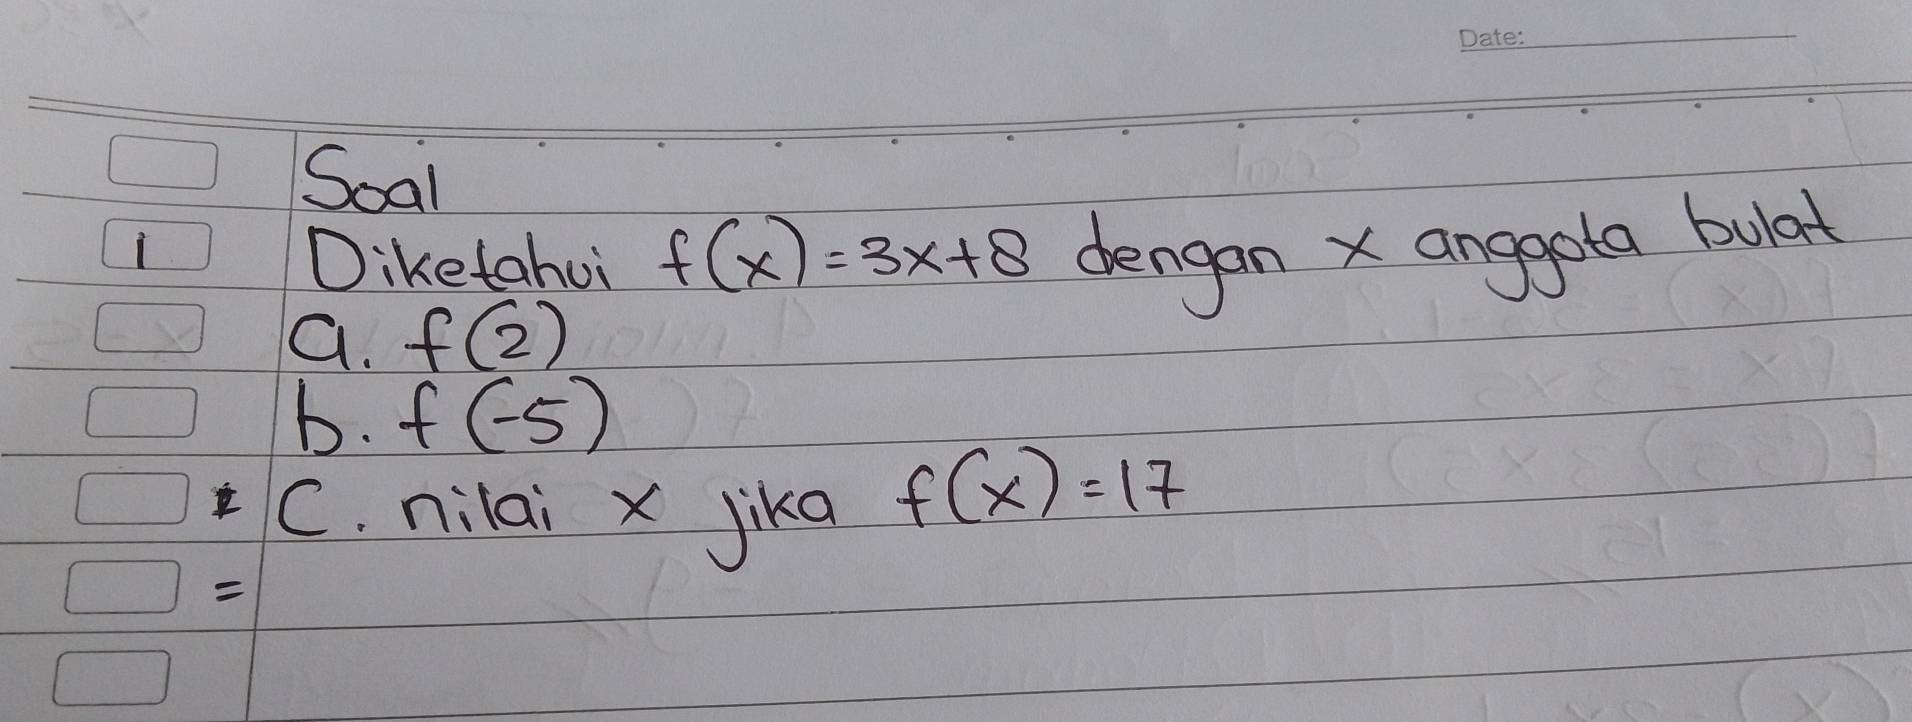 Date:
Soal
1 Diketahui f(x) = 3x+8 dengan x anggota bulat
a. f(2)
b. f(-5)
C. nilai x jika f(x) = 17
=